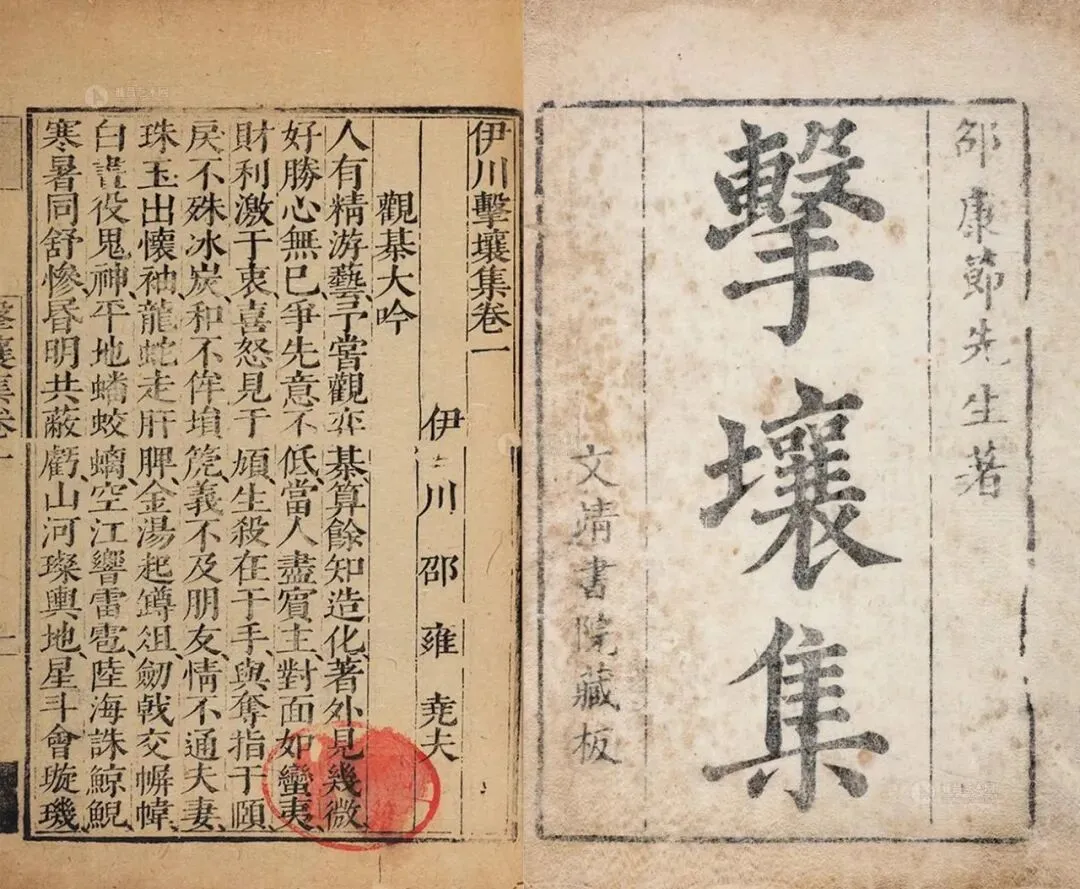 邵康節先生著
擊壤集
文靖書院藏板
伊川擊壤集卷一
伊川邵雍尭夫
觀棊大吟
人有精游藝予嘗觀弈棊算餘知造化著外見幾微
好勝心無巳爭先意不低當人盡賓主對面如蠻夷
財利激于衷喜怒見于頄生殺在于手與奪指于頤
戾不殊冰炭和不侔塤箎義不及朋友情不通夫妻
珠玉出懷袖龍蛇走肝脾金湯起罇俎劒戟交幈幃
白晝役鬼神平地蟠蛟螭空江響雷雹陸海誅鯨鯢
寒暑同舒慘昬明共蔽虧山河璨輿地星斗會璇璣
擊壤集卷一